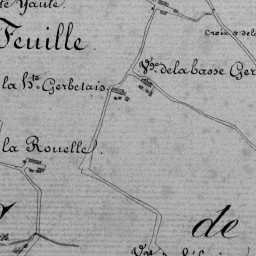 Feuille
Croix d
Vge de la basse Ger
la Hte Gerbetais
la Rouelle
de